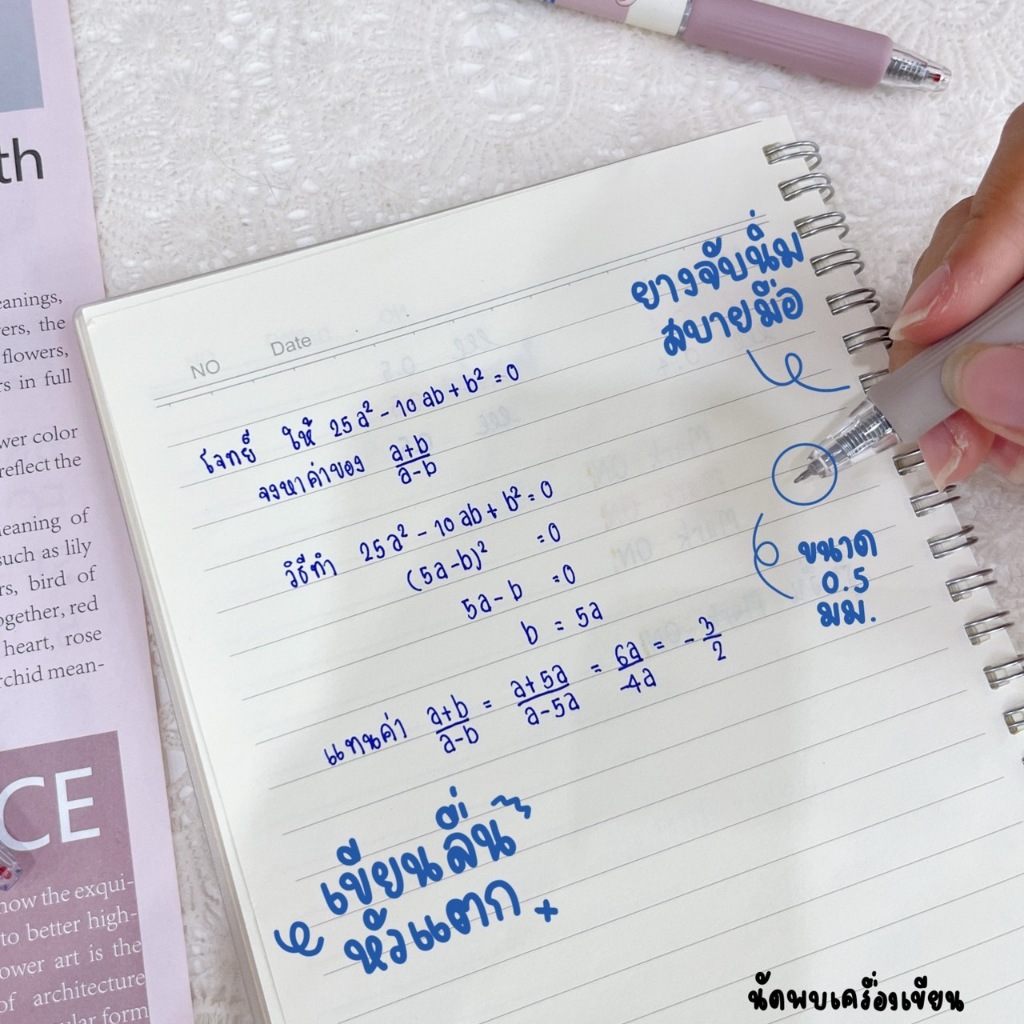 th
eanings,
ers, the
flowers,
rs in full
wer color
reflect the
eaning of
such as lily
rs, bird of
ogether, red
heart, rose
rchid mean-
CE
now the exqui-
to better high-
ower art is the
of architecture
ular form
NO Date
โจทย์ ให้ 25a² - 10ab + b² = 0
จงหาค่าของ (a+b)/(a-b)
วิธีทำ 25a² - 10ab + b² = 0
(5a-b)² = 0
5a - b = 0
b = 5a
แทนค่า (a+b)/(a-b) = (a+5a)/(a-5a) = 6a/-4a = -3/2
ยางจับนิ่ม
สบายมือ
ขนาด
0.5
มม.
เขียนลื่น
หัวแตก
นัดพบเครื่องเขียน